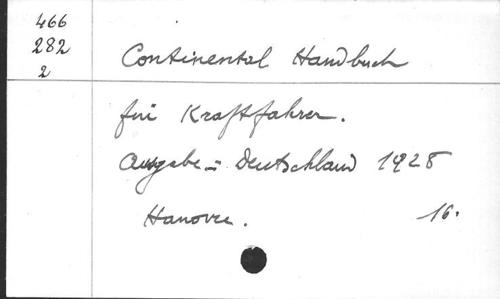 466
282
2
Continental Handbuch
für Kraftfahrer.
Ausgabe: Deutschland 1928
Hanovre.
16.